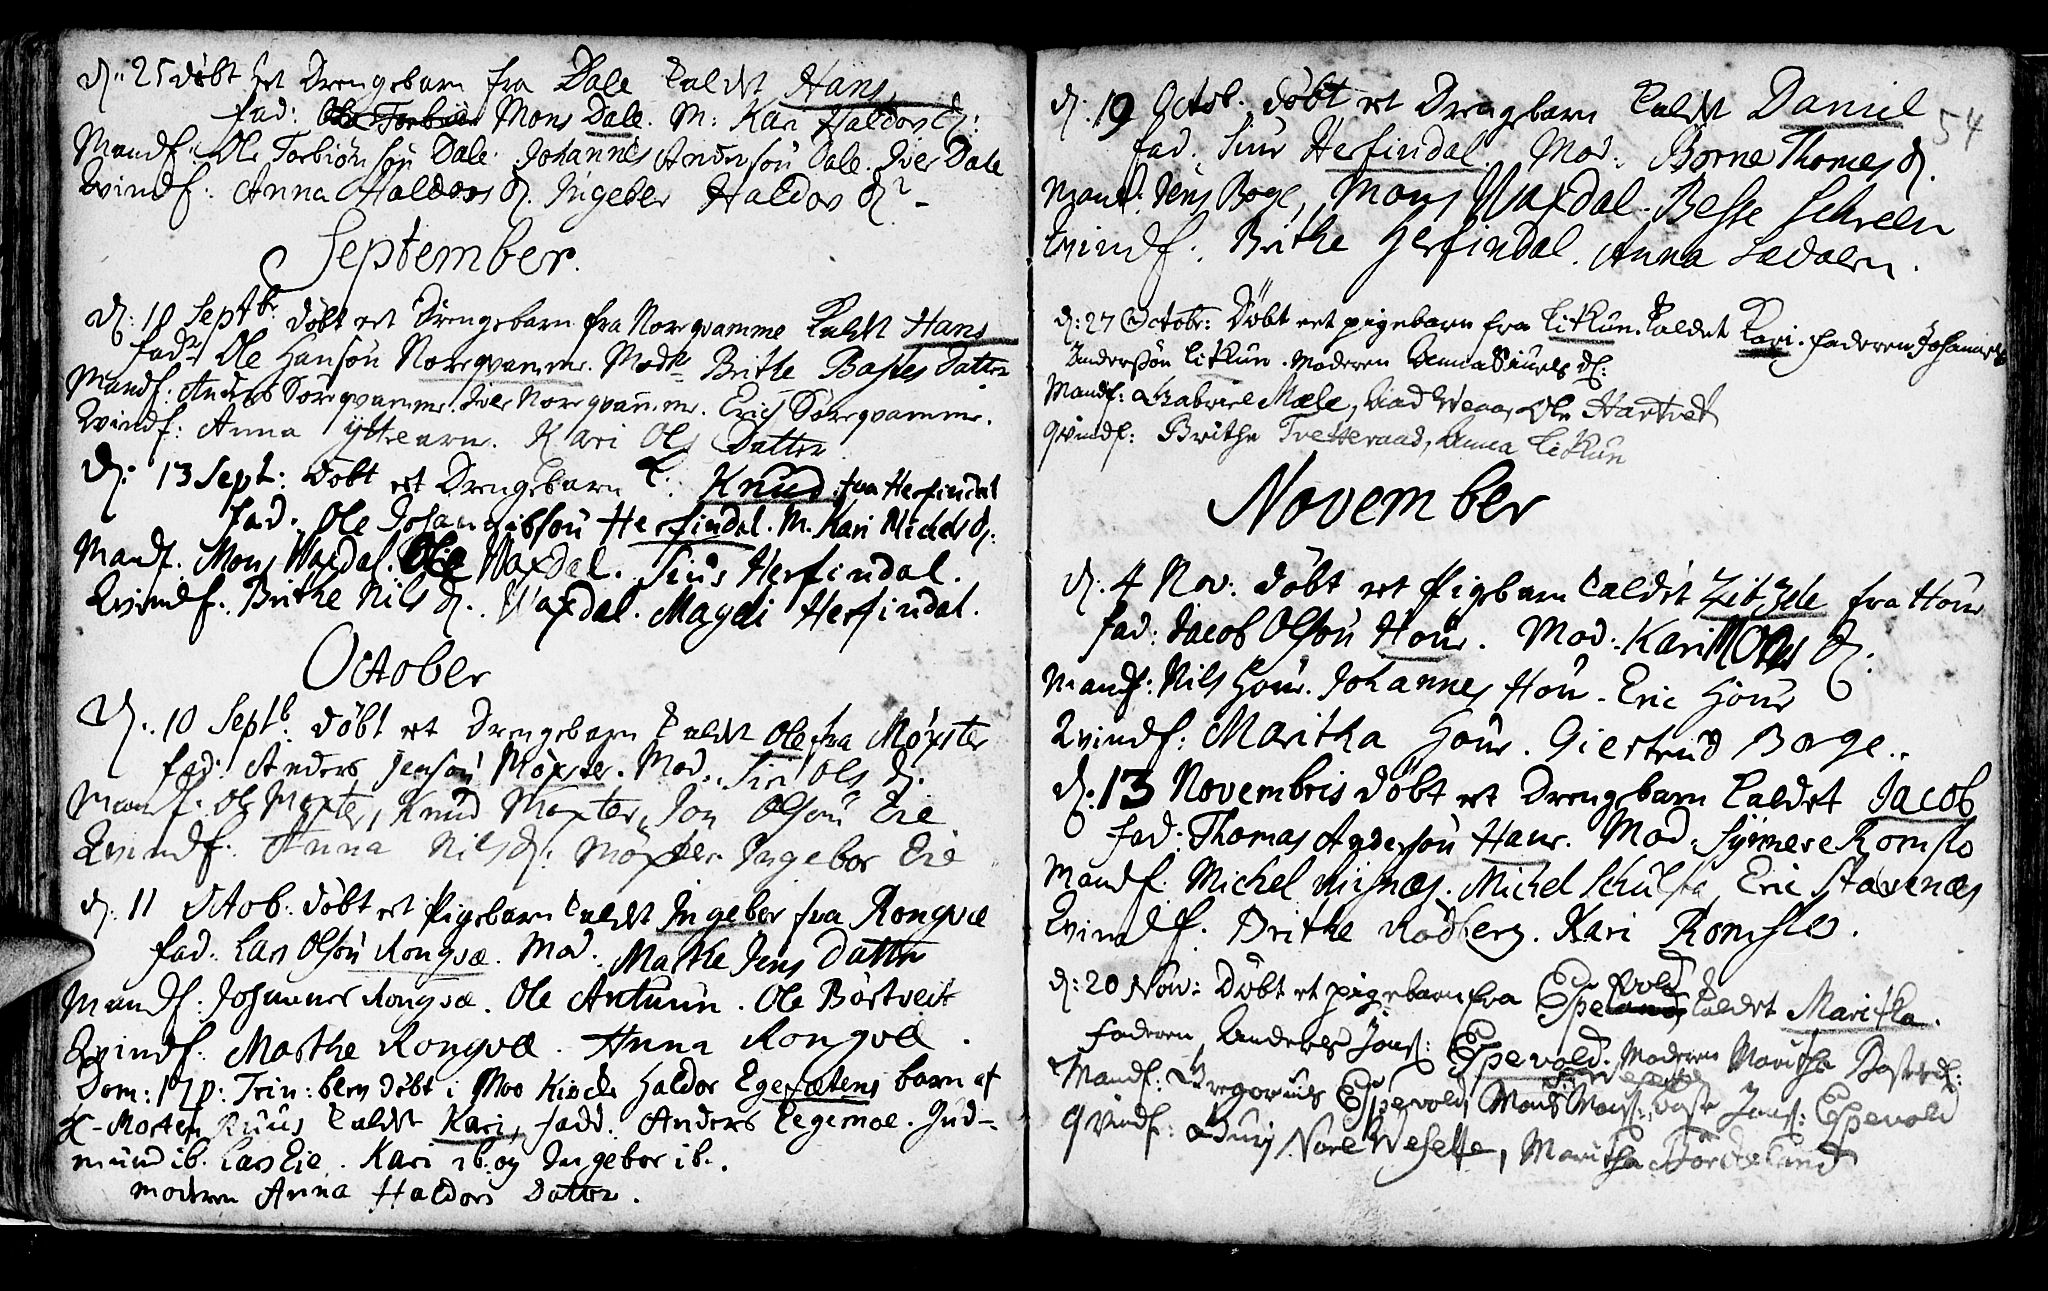 d. 25 døbt Et Drengebarn fra Dale kaldet Hans
fad: Mons Dale. M: Kari Haldors D:
Mandf: Ole Torbiønsøn Dale. Johannes Andersøn Dale. Iver Dale
Qvindf: Anna Haldors D. Ingeber Haldors D.
September.
d: 10 Septbr: døbt et Drengebarn fra Norqvamme kaldet Hans
fadr Ole Hansøn Norqvamme. Modr Brithe Bastes Datter
Mandf: Anders Sørqvamme. Iver Norqvamme. Erich Sørqvamme.
Qvindf: Anna Yttrearn. Kari Ols Datter
d. 13 Sept: døbt et Drengebarn k: Knud fra Herfindal
fad. Ole Johannissøn Herfindal. M. Kari Michels D.
Mandf. Mons Waxdal. Ole Waxdal. Siur Herfindal.
Qvindf. Brithe Nils D. Waxdal. Magdi Herfindal.
October
d. 10 Septb. døbt et Drengebarn kaldet Ole fra Møxter
fad: Anders Jensøn Møxster. Mod. Siri Ols D.
Mandf: Ole Møxter, Knud Møxter, Jon Olsøn Eie
Qvindf. Anna Nils D: Møxter. Ingebor Eie
d: 11 Octob: døbt et Pigebarn kaldet Ingeber fra Rongve
fad. Lars Olsøn Rongvæ. Mod. Marthe Jens Datter
Mandf: Johannes Rongvæ. Ole Antunn. Ole Børtveit
Qvindf. Marthe Rongvæ. Anna Rongvæ.
Dom: 17 p: Trin: blev døbt i Moo Kircke Haldor Egesætens barn af
Morten Ruus kaldet Kari, fadd. Anders Tegemoe. Gud-
mund ib. Lars Eie. Kari ib. og Ingebor ib.
modren Anna Haldors Datter.
54
d. 19 Octob. døbt et Drengebarn kaldet Daniel
fad. Siur Herfindal. Mod: Børne Thomes D.
Mandf. Jens Boge, Mons Waxdal. Besse Schreen
Qvindf. Brithe Herfindal. Anna Ladalen.
d: 27 Octobr: Døbt eet pigebarn fra Litlun kaldet Kari. faderen Johannes
Andersøn Litlun. Moderen Anna Siurs D:
Mandf: Gabriel Mæle, Ole Hartvet
Qvindf: Brithe Tvetteraas, Anna Litlun
November
d. 4 Nov: døbt et Pigebarn kaldet Zitzele fra Hour
fad: Jacob Olsøn Hour. Mod. Kari Ols D:
Mandf: Nils Hour. Johannes Hour. Eric Hour
Qvindf: Maritha Hour. Giertrud Borge.
d. 13 Novembris døbt et Drengebarn kaldet Jacob
fad: Thomas Andersøn Haur. Mod: Synneve Romslo
Mandf. Michel Vignæs. Michel Schulsta, Eric Stavenæs
Qvindf. Brithe Rødberg. Kari Romslo.
d: 20 Nov: Døbt et pigebarn fra Espevold kaldet Maritha.
Faderen Anders Jons: Espevold. Moderen Maritha Bastesd:
Mandf: Gregorius Espevold, Mons Mons: Baste Jons: Espevold
Qvindf: Guri Nore Wesette, Maritha Børdeland